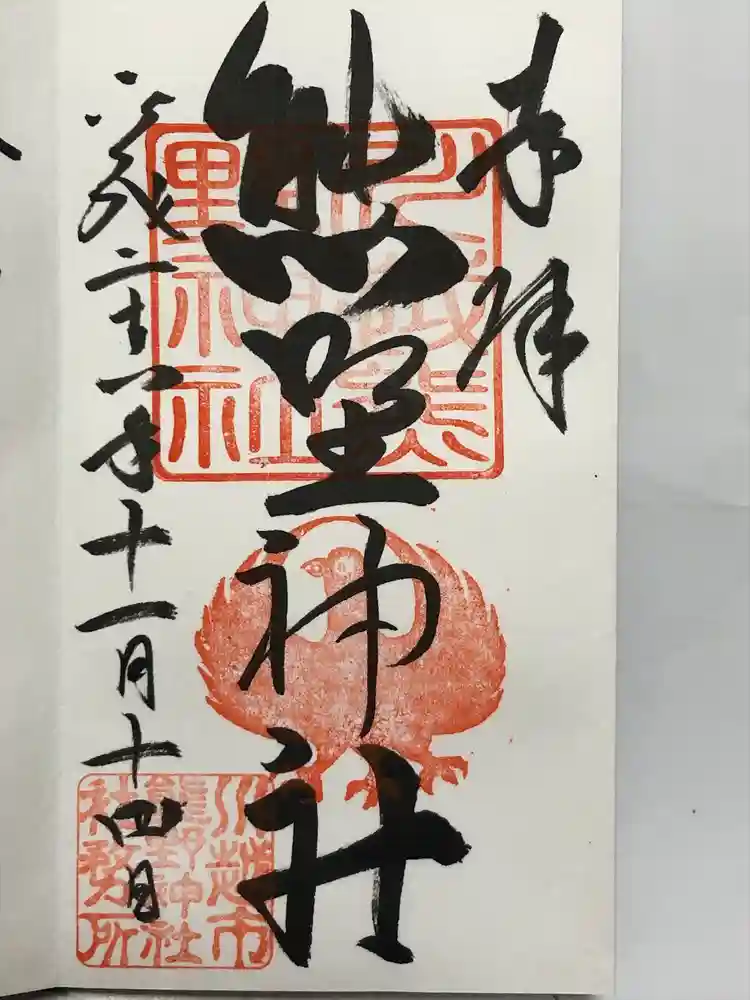 奉拝
川越熊
野神社
熊野神社
平成二十八年十一月十四日
川越市
熊野神社
社務所